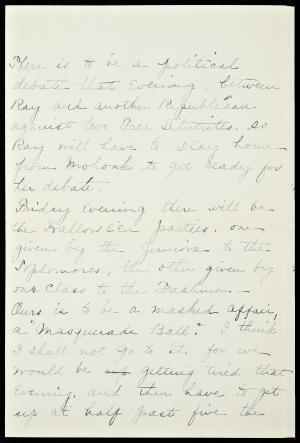 There is to be a political
debate that evening, between
Ray and another Republican
against two Free Silverites, so
Ray will have to stay home
from Mohonk to get ready for
her debate.
Friday evening there will be
the Hallow E'en parties, one
given by the Juniors to the
Sophomores, the other given by
our class to the Freshmen. -
Ours is to be a masked affair,
a "Masquerade Ball." I think
I shall not go to it, for we
would be getting tired that
evening, and then have to get
up at half past five the